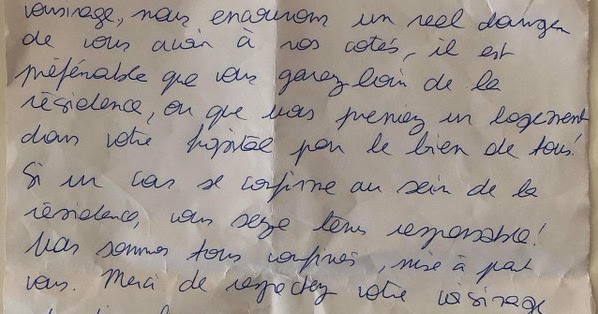 voisinage, nous encourons un réel danger
de vous avoir à nos cotés, il est
préférable que vous garez loin de la
résidence, ou que vous preniez un logement
dans votre hôpital pour le bien de tous!
Si un cas se confirme au sein de la
résidence, vous serez tenu responsable!
Nous sommes tous confinés, mise à part
vous. Merci de respectez votre voisinage